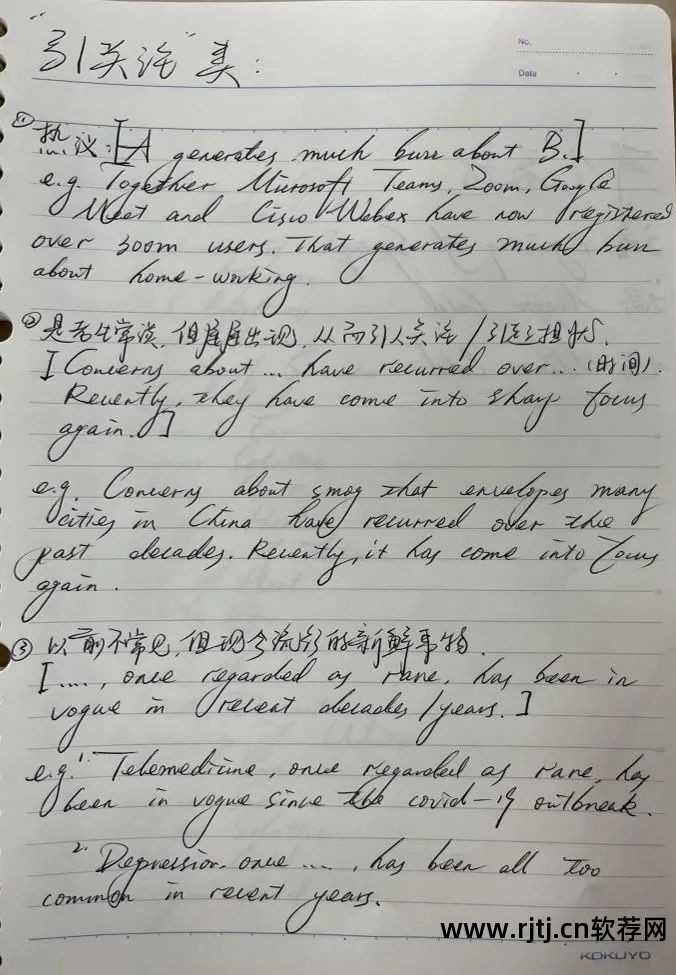 引关注"类:
No.
Date
① 热议:[A generates much buzz about B.]
e.g. Together Microsoft Teams, Zoom, Google
Meet and Cisco Webex have now registered
over 300m users. That generates much buzz
about home-working.
② 是老生常谈,但屡屡出现,从而引人关注/引起担忧.
[Concerns about... have recurred over... (时间).
Recently, they have come into sharp focus
again.]
e.g. Concerns about smog that envelopes many
cities in China have recurred over the
past decades. Recently, it has come into focus
again.
③ 以前不常见,但现今流行的新鲜事物.
[...., once regarded as rare, has been in
vogue in recent decades/years.]
e.g. 1. Telemedicine, once regarded as rare, has
been in vogue since the covid-19 outbreak.
2. Depression, once ...., has been all too
common in recent years.
www.rjtj.cn软荐网
KOKUYO